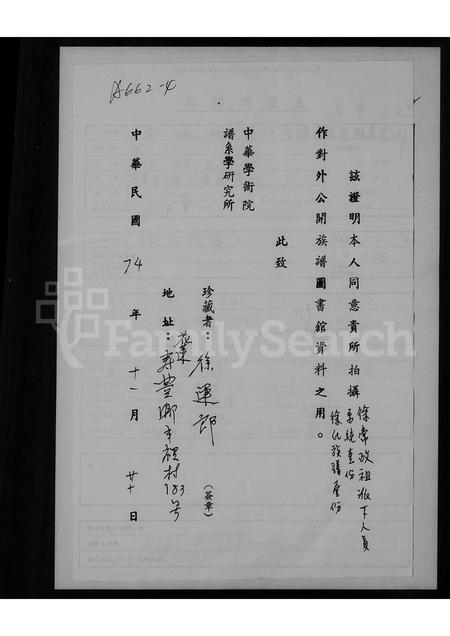 A662-4
茲證明本人同意貴所拍攝
徐常政祖派下人員
系統壹份
徐氏族譜壹份
作對外公開族譜圖書館資料之用。
此致
中華學術院
譜系學研究所
珍藏者：徐運郎（簽章）
地址：花蓮
壽豐鄉平和村183號
中華民國74年十一月廿日
FamilySearch